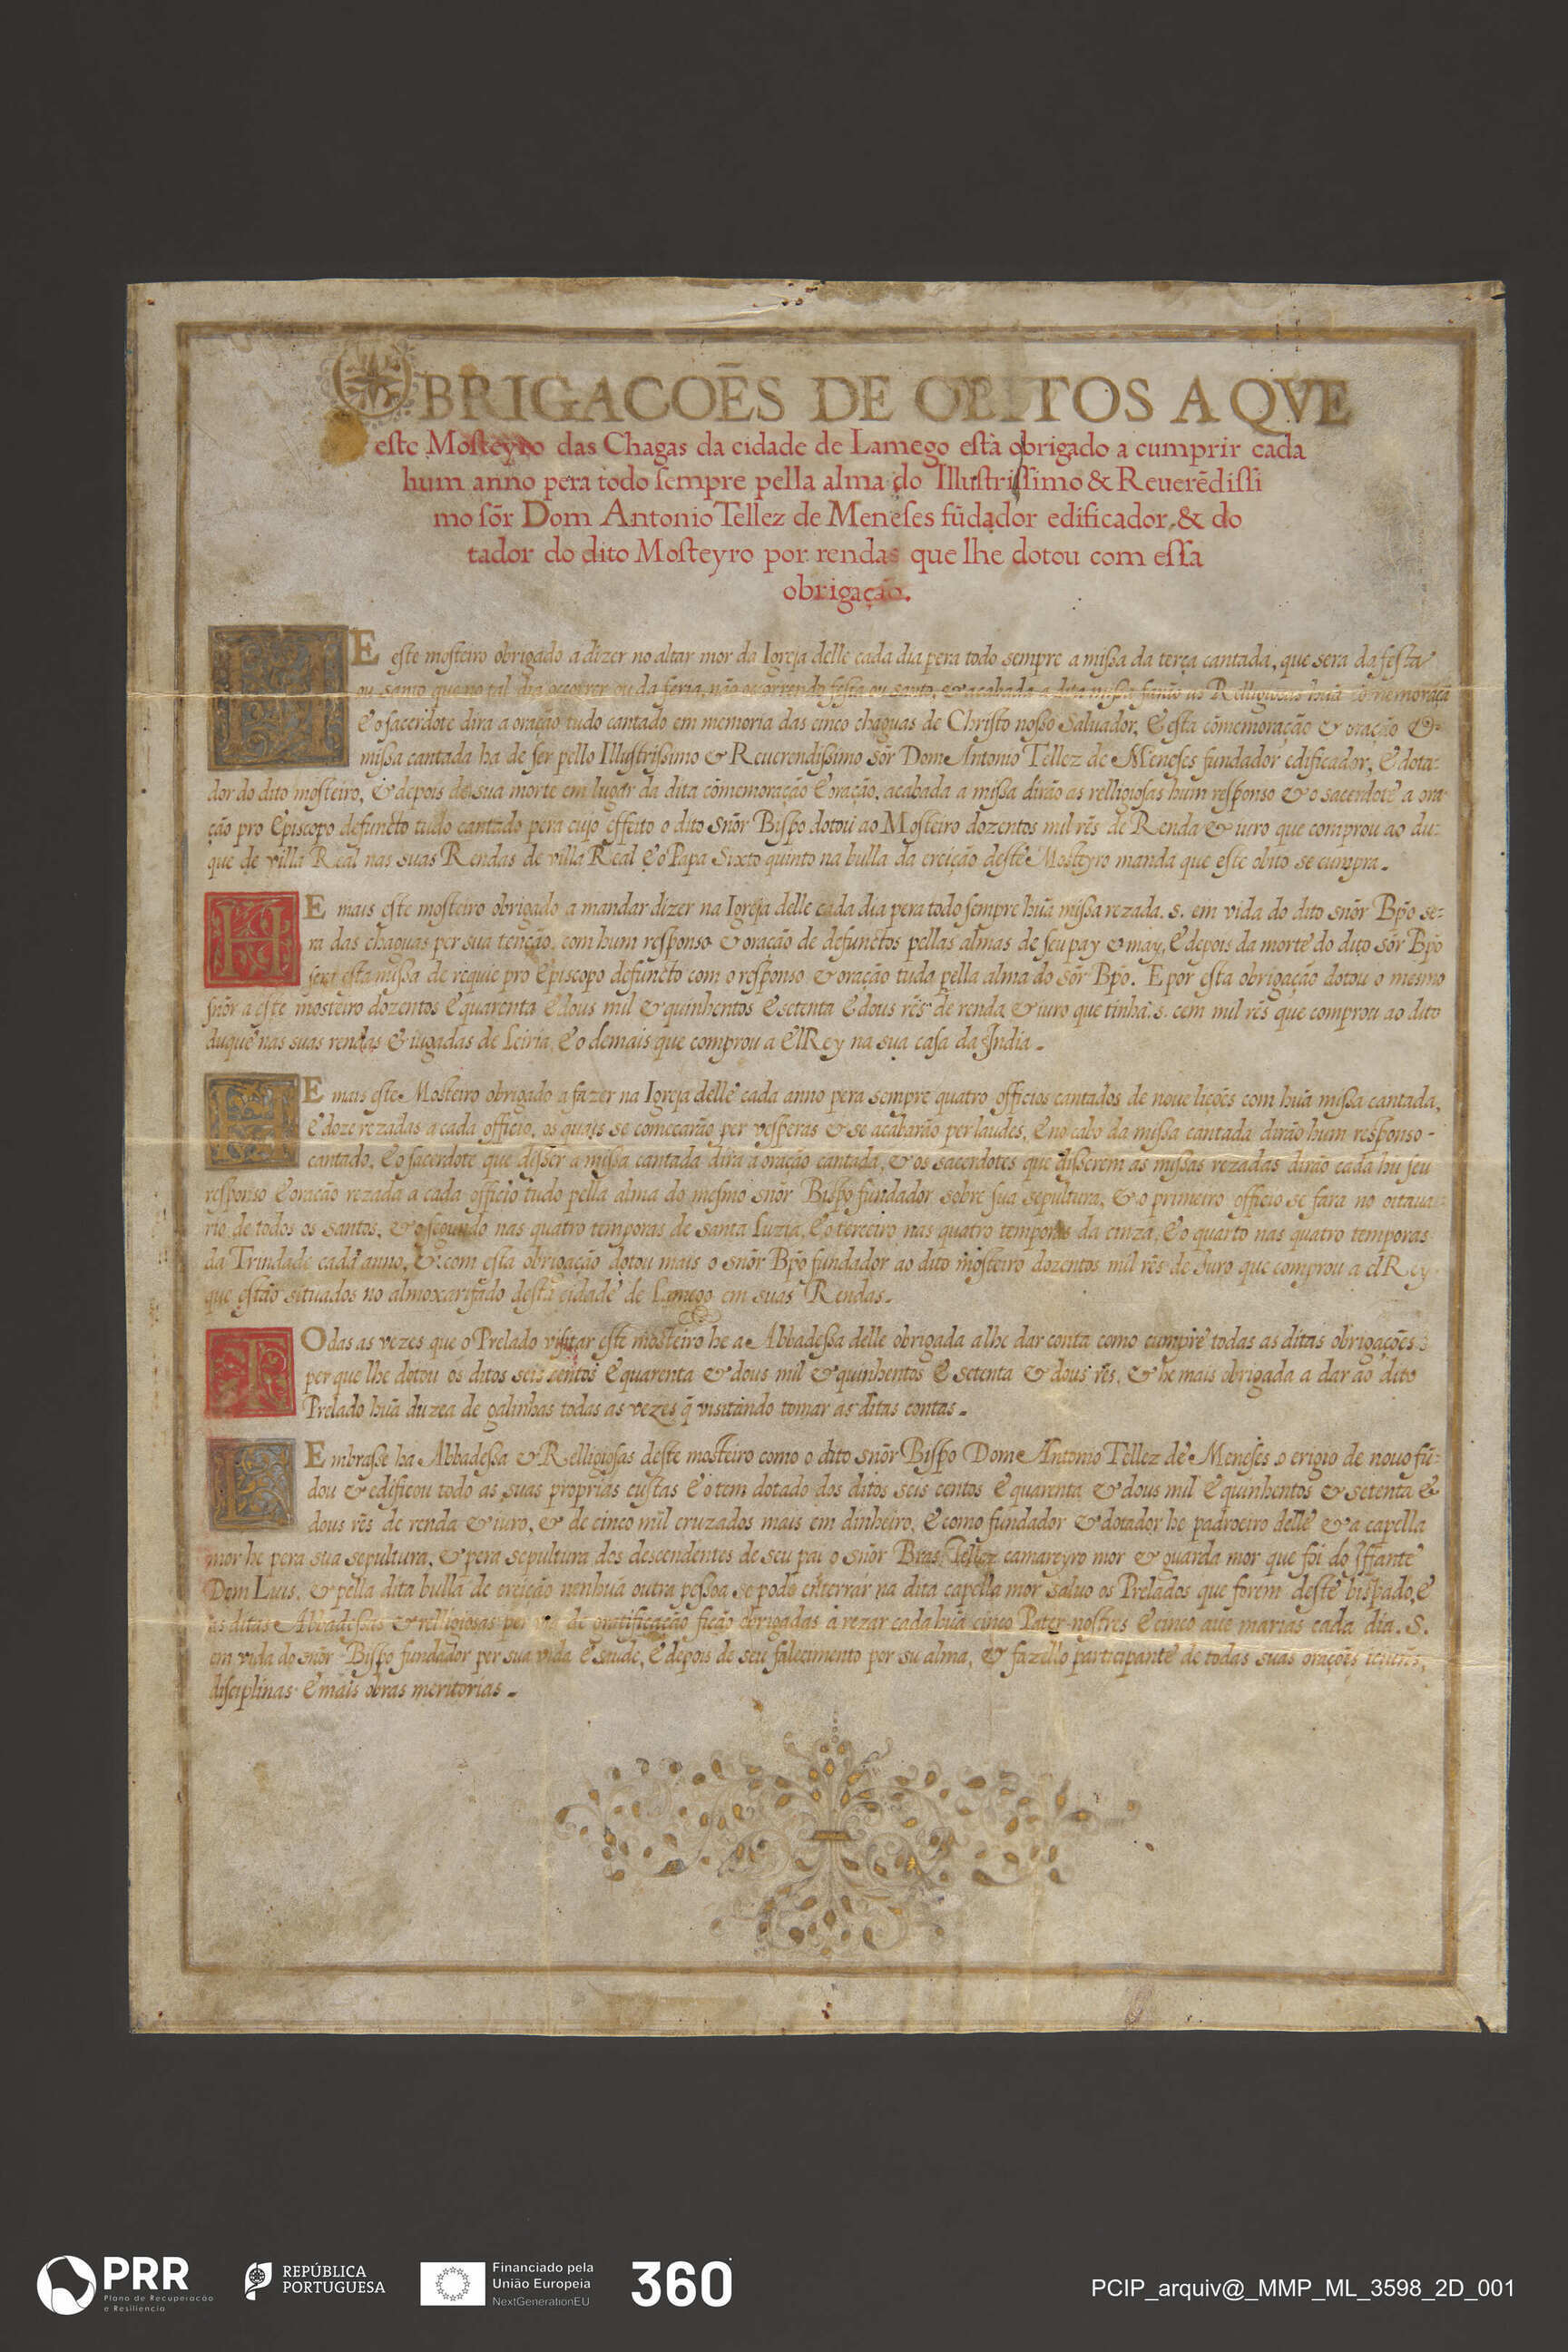 OBRIGACOẼS DE OBITOS A QVE
este Mosteyro das Chagas da cidade de Lamego està obrigado a cumprir cada
hum anno pera todo sempre pella alma do Illustrissimo & Reuerẽdissi
mo sõr Dom Antonio Tellez de Meneses fũdador edificador, & do
tador do dito Mosteyro por rendas que lhe dotou com essa
obrigação.
HE este mosteiro obrigado a dizer no altar mor da Igreja delle cada dia pera todo sempre a missa da terça cantada, que sera da festa
ou santo que no tal dia occorrer ou da feria, não occorrendo festa ou santo, & acabada a dita missa farão as Relligiosas hũa cõmemoraçã
& o sacerdote dira a oração tudo cantado em memoria das cinco chaguas de Christo nosso Saluador, & esta cõmemoração & oração &
missa cantada ha de ser pello Illustrissimo & Reuerendissimo sõr Dom Antonio Tellez de Meneses fundador edificador, & dota-
dor do dito mosteiro, & depois de sua morte em lugar da dita cõmemoração & oração, acabada a missa dirão as relligiosas hum responso & o sacerdote a ora
ção pro Episcopo defuncto tudo cantado pera cujo effeito o dito Snõr Bispo dotou ao Mosteiro dozentos mil rẽs de Renda & iuro que comprou ao du-
que de villa Real nas suas Rendas de villa Real & o Papa Sixto quinto na bulla da ereição deste Mosteyro manda que este obito se cumpra.
HE mais este mosteiro obrigado a mandar dizer na Igreja delle cada dia pera todo sempre hũa missa rezada. s. em vida do dito snõr Bp̃o se-
ra das chaguas per sua tenção, com hum responso & oração de defunctos pellas almas de seu pay & may, & depois da morte do dito sõr Bp̃o
sera esta missa de requie pro Episcopo defuncto com o responso & oração tuda pella alma do sõr Bp̃o. E por esta obrigação dotou o mesmo
snõr a este mosteiro dozentos & quarenta & dous mil & quinhentos & setenta & dous rẽs de renda & iuro que tinha. s. cem mil rẽs que comprou ao dito
duque nas suas rendas & iugadas de Leiria, & o demais que comprou a ElRey na sua casa da India.
HE mais este Mosteiro obrigado a fazer na Igreja delle cada anno pera sempre quatro officios cantados de noue licões com hũa missa cantada,
& doze rezadas a cada officio, os quais se comecarão per vesperas & se acabarão per laudes, & no cabo da missa cantada dirão hum responso
cantado, & o sacerdote que disser a missa cantada dira a oração cantada, & os sacerdotes que disserem as missas rezadas dirão cada hũ seu
responso & oração rezada a cada officio tudo pella alma do mesmo snõr Bispo fundador sobre sua sepultura, & o primeiro officio se fara no oitaua
rio de todos os santos, & o segundo nas quatro temporas de santa Luzia, & o terceiro nas quatro temporas da cinza, & o quarto nas quatro temporas
da Trindade cada anno, & com esta obrigação dotou mais o snõr Bp̃o fundador ao dito mosteiro dozentos mil rẽs de Juro que comprou a elRey
que estão situados no almoxarifado desta cidade de Lamego em suas Rendas.
TOdas as vezes que o Prelado visitar este mosteiro he a Abbadessa delle obrigada a lhe dar conta como cumpre todas as ditas obrigações
per que lhe dotou os ditos seis centos & quarenta & dous mil & quinhentos & setenta & dous rẽs, & he mais obrigada a dar ao dito
Prelado hũa duzea de galinhas todas as vezes q̃ visitando tomar as ditas contas.
LEmbrasse ha Abbadessa & Relligiosas deste mosteiro como o dito snõr Bispo Dom Antonio Tellez de Meneses o erigio de nouo fũ-
dou & edificou todo as suas proprias custas & o tem dotado dos ditos seis centos & quarenta & dous mil & quinhentos & setenta &
dous rẽs de renda & iuro, & de cinco mil cruzados mais em dinheiro, & como fundador & dotador he padroeiro delle & a capella
mor he pera sua sepultura, & pera sepultura dos descendentes de seu pai o snõr Bras Tellez camareyro mor & guarda mor que foi do Iffante
Dom Luis, & pella dita bulla de ereição nenhũa outra pessoa se pode enterrar na dita capella mor saluo os Prelados que forem deste bispado, &
as ditas Abbadessas & relligiosas per via de gratificação ficão obrigadas a rezar cada hũa cinco Pater nostres & cinco aue marias cada dia. S.
em vida do snõr Bispo fundador per sua vida & saude, & depois de seu falecimento por su alma, & fazello participante de todas suas orações
disciplinas & mais obras meritorias.
PRR
Plano de Recuperação
e Resiliência
REPÚBLICA
PORTUGUESA
Financiado pela
União Europeia
NextGenerationEU
360
PCIP_arquiv@_MMP_ML_3598_2D_001